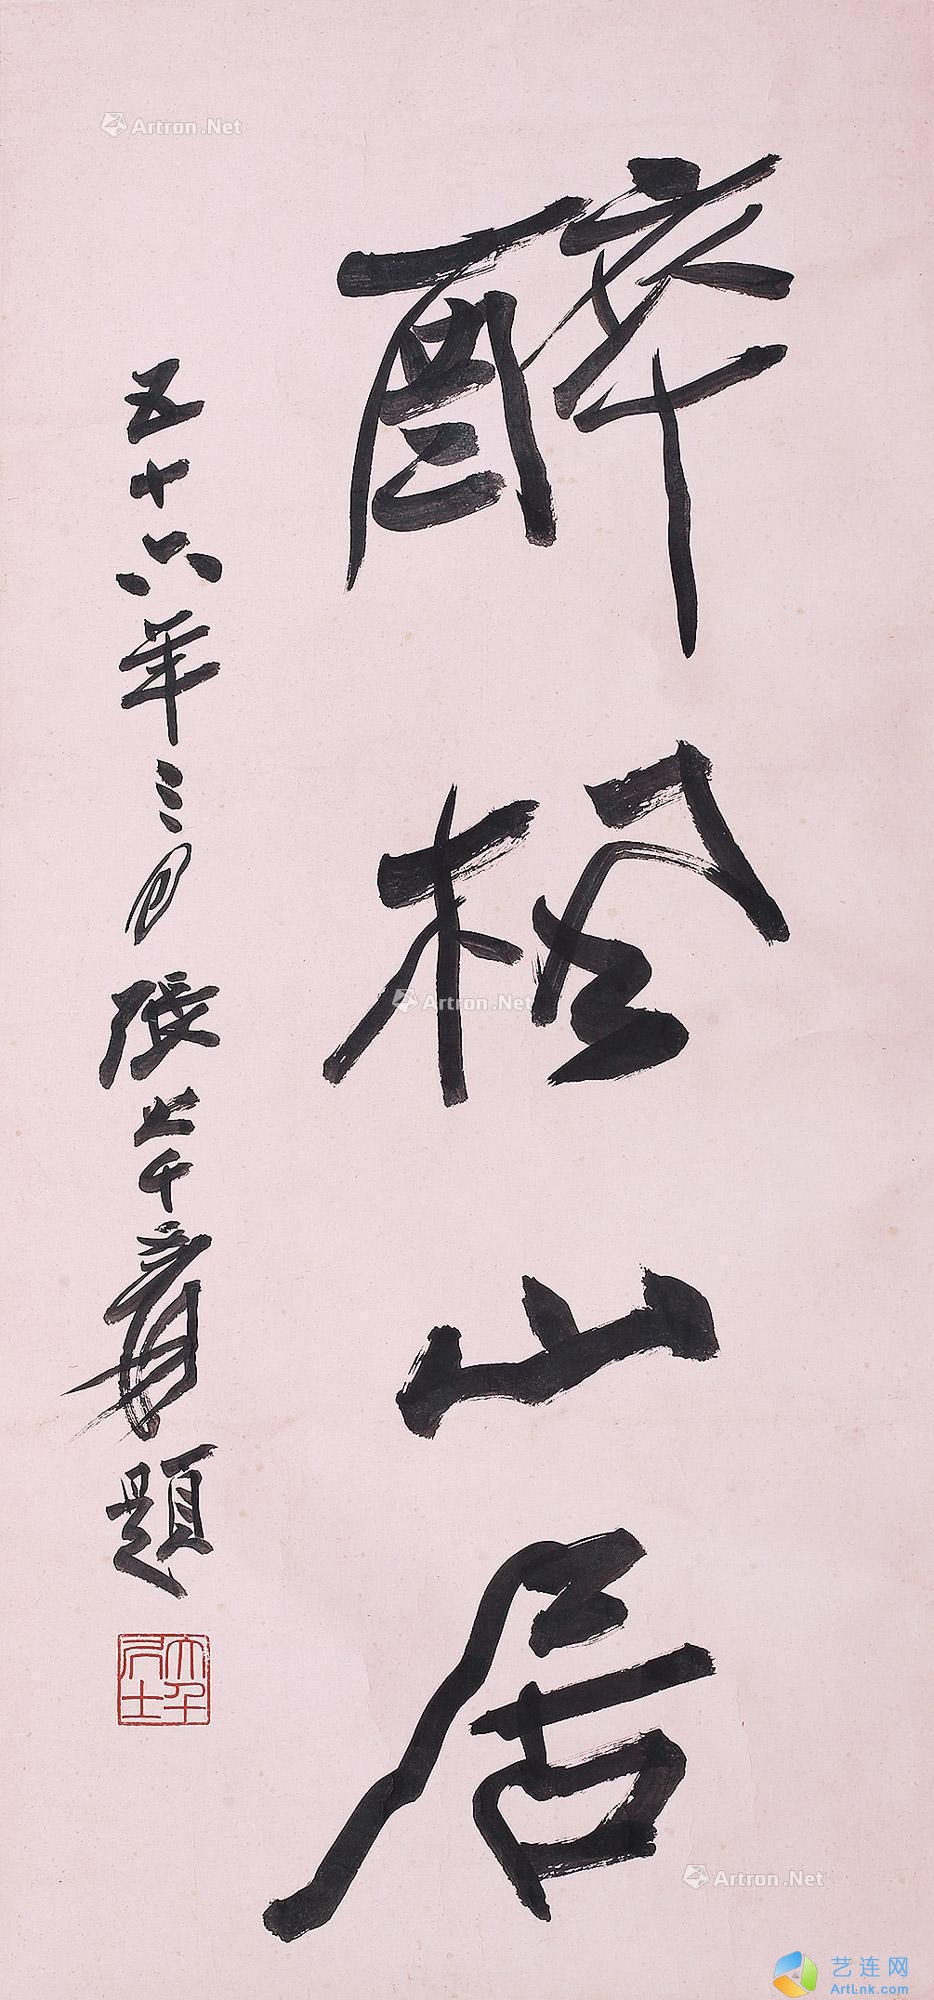 Artron.Net
醉松山居
五十六年三月張大千爰題
大千居士
Artron.Net
Artron.Net
艺连网
ArtLnk.com